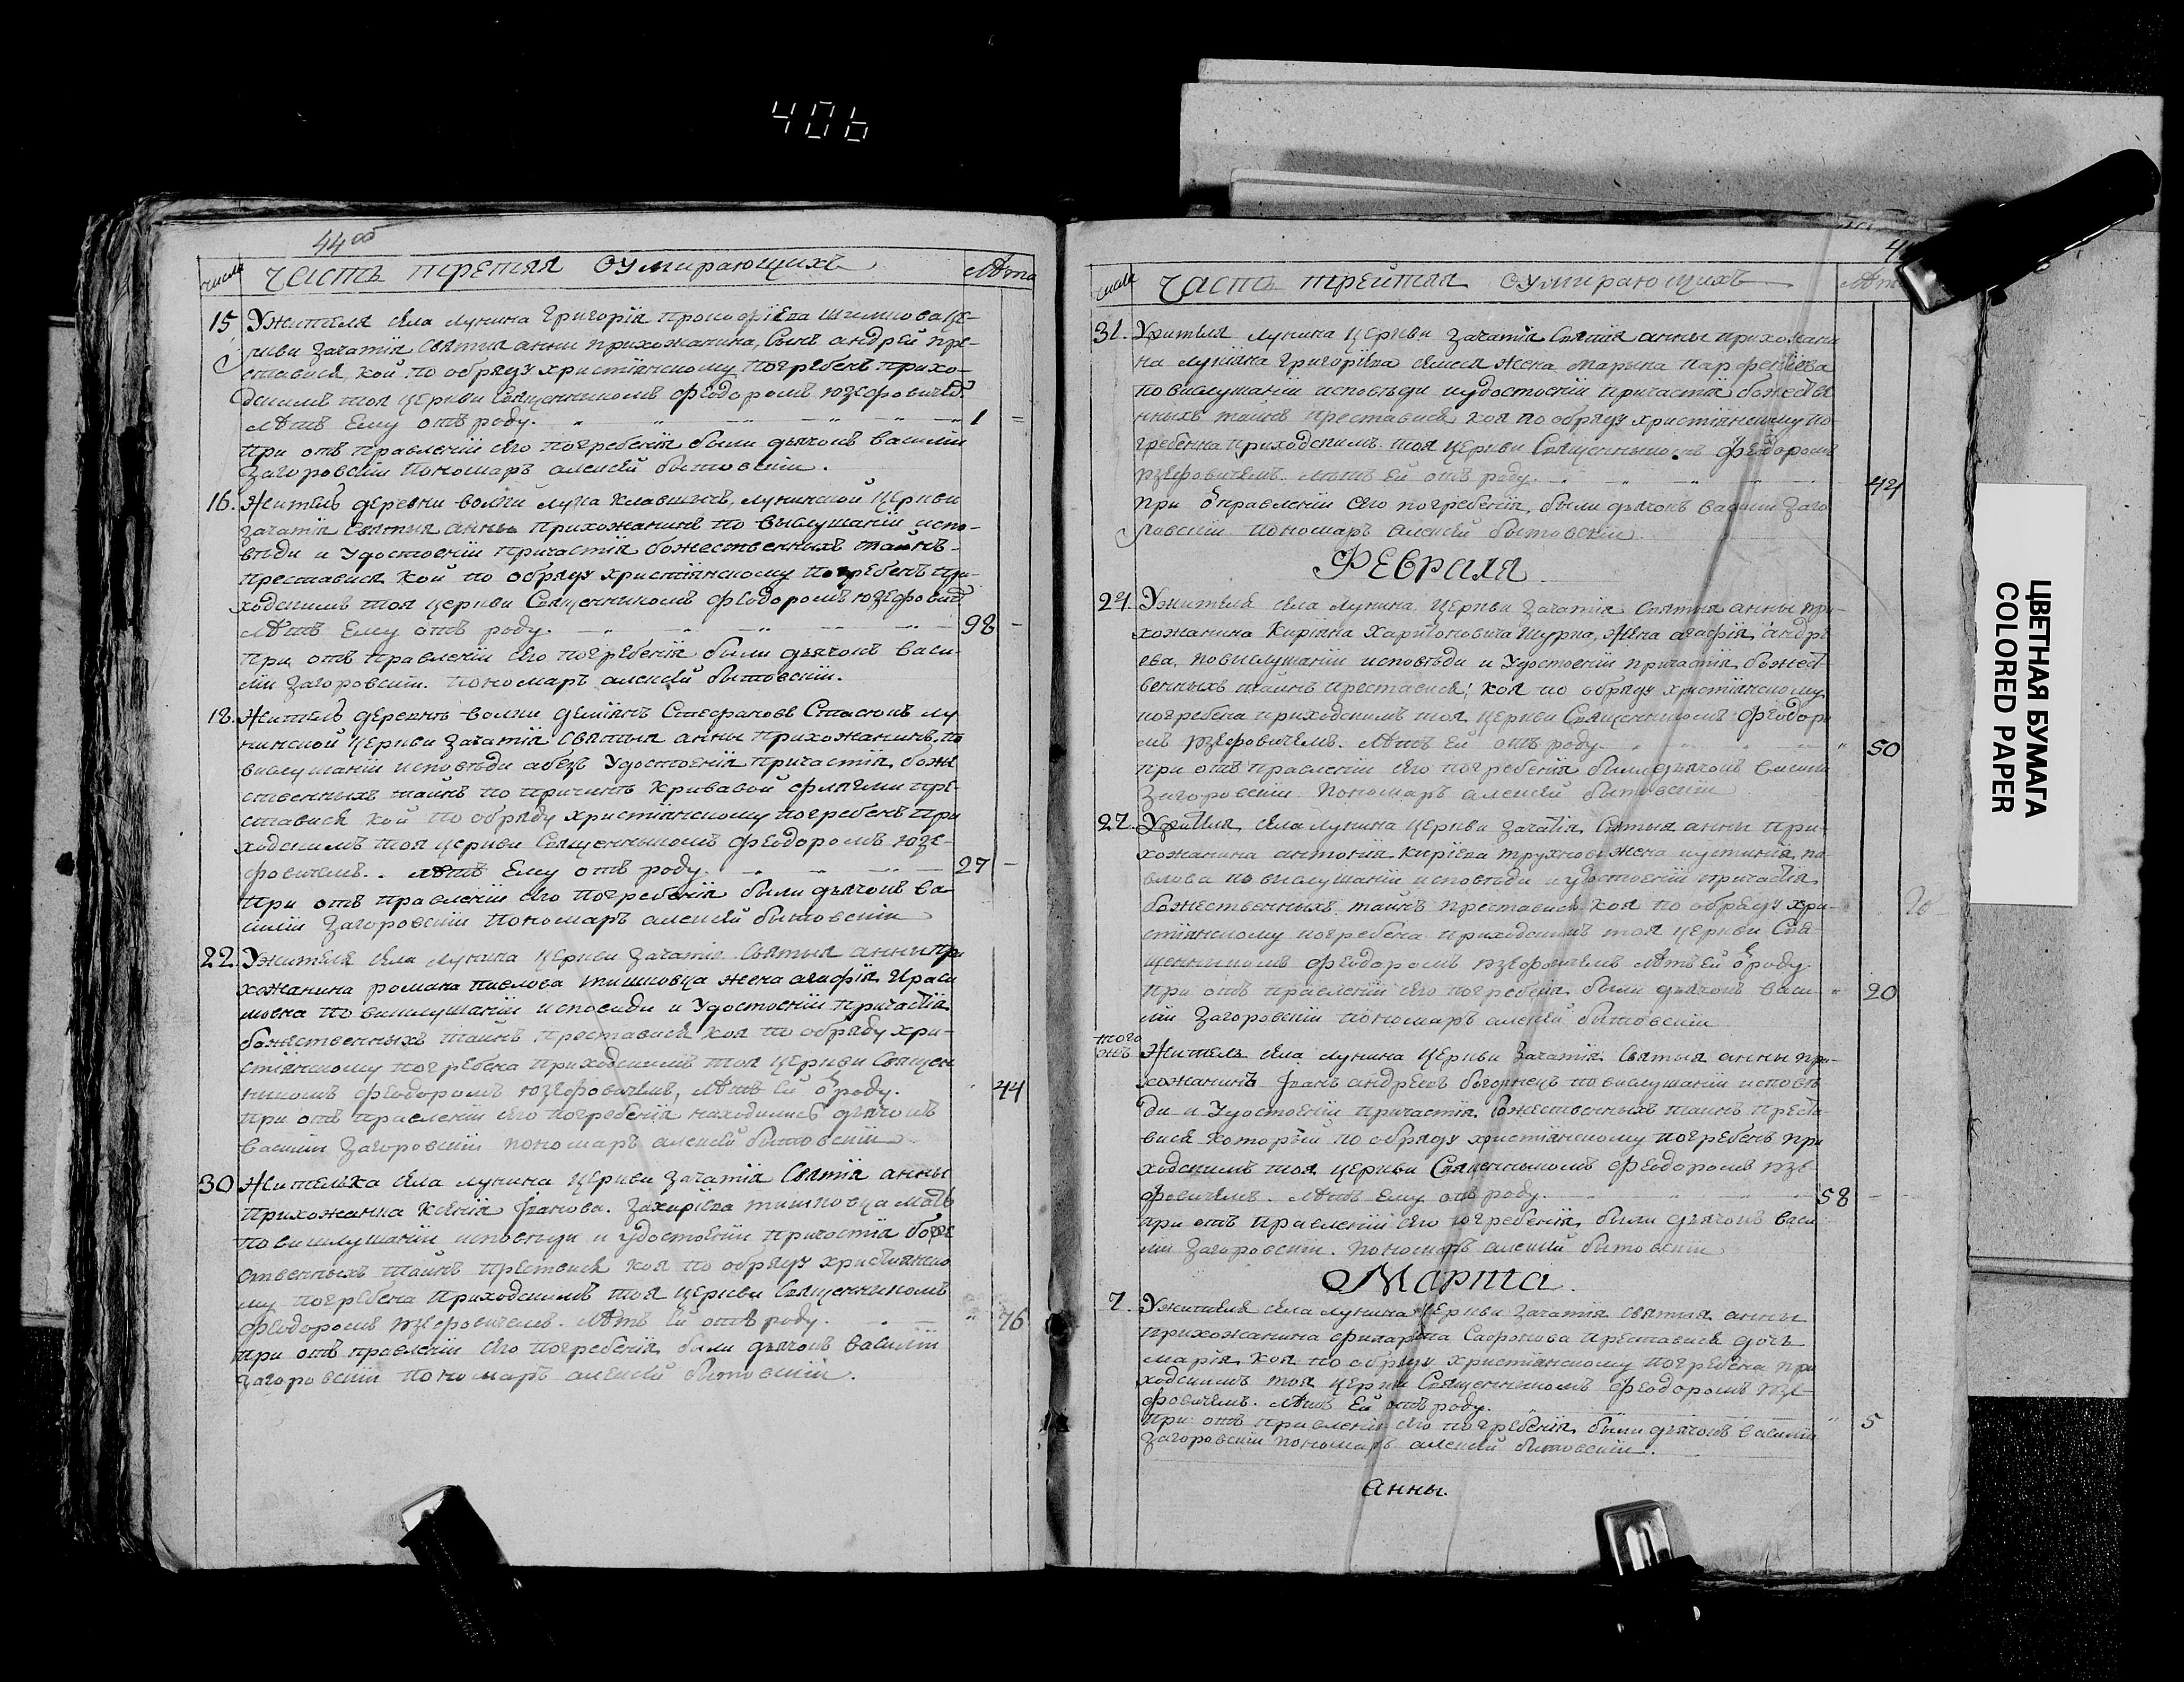 406
44 об
числа
Часть третяя О Умирающихъ
Лѣта
15
Ужителя села лунина григорїя прокофїева шимковца це-
ркви зачатїя святыя анны прихожанина, сынъ андрей пре-
ставися, кой по обряду христїянскому погребенъ прихо-
дскимъ тоя церкви священникомъ феодоромъ юзефовичемъ.
лѣтъ Ему отъ роду.
1
при отъ правленїи его погребенїя были дьячокъ василїи
Загоровскїи пономаръ алексѣй бытовскїи.
16.
Житель деревни волки лука клавшичъ, лунинской церкви
зачатїя святыя анны прихожанинъ по выслушанїи испо-
вѣди и Удостоенїи причастїя божественныхъ таинъ
преставися кой по обряду христїянскому погребенъ при-
ходскимъ тоя церкви священникомъ феодоромъ юзефович
лѣтъ Ему отъ роду.
98
при отъ правленїи его погребенїя были дьячокъ васи-
лїи Загоровскїи. пономаръ алексѣй бытовскїи.
18.
Житель деревнѣ волки демїянъ Стефановъ Стасюкъ лу
нинской церкви зачатїя святыя анны прихожанинъ, по
выслушанїи исповѣди абезъ Удостоенїя причастїя боже
ственныхъ таинъ по причинѣ кривавой флегми пре-
ставися кой по обряду христїянскому погребенъ при
ходскимъ тоя церкви священникомъ феодоромъ юзе-
фовичемъ.. лѣтъ Ему отъ роду.
27
при отъ правленїи его погребенїя были дьячокъ ва-
силїи Загоровскїи пономаръ алексѣй бытовскїи
22.
Ужителя села лунина церкви зачатїе святыя анны при
хожанина романа павлова тишковца жена агафїя Ираси
мовна по выслушанїи исповѣди и Удостоенїи причастїя
божественныхъ таинъ преставися коя по обряду хри-
стїянскому погребена приходскимъ тоя церкви священ
никомъ феодоромъ юзефовичемъ, лѣтъ Ей о роду.
44
при отъ правленїи его погребенїя находились дьячокъ
василїи Загоровскїи пономаръ алексѣй бытовскїи
30
Жителька села лунина церкви зачатїя святїя анны
прихожанка ксенїя Іванова. Захарїева тишковца мать
по выслушанїи исповѣди и удостоенїи причастїя боже
ственныхъ таинъ преставися коя по обряду христїянско
му погребена приходскимъ тоя церкви священникомъ
феодоромъ юзефовичемъ. лѣтъ Ей отъ роду.
76
при отъ правленїи его погребенїя были дьячокъ василїи
Загоровскїи пономаръ алексѣй бытовскїи.
числа
Часть трейтяя О Умирающихъ
31.
Ужителя лунина церкви зачатїя святїя анны прихожани
на лукїяна григорїева жена марина парфенїева
по выслушанїи исповѣди иудостоенїи причастїя божестве
нныхъ таинъ преставися, коя по обряду христїянскому по
гребенна приходскимъ тоя церкви священникомъ феодоромъ
юзефовичемъ. лѣтъ Ей отъ роду.
42
при о правленїи его погребенїя, были дьячокъ василїи Заго
ровскїи пономаръ алексѣй бытовскїи.
Февраля
24.
Ужителя села лунина церкви зачатїя святыя анны при-
хожанина Кирїяна Харитоновича Шурпа, жена агафїя андре
ева, по выслушанїи исповѣди и Удостоенїи причастїя божест-
венныхъ таинъ преставися; коя по обряду христїянскому
погребена приходскимъ тоя церкви священникомъ феодоро
мъ юзефовичемъ. лѣтъ Ей отъ роду.
50
при отъ правленїи его погребенїя были дьячокъ василїи
Загоровскїи. пономаръ алексѣй бытовскїи
27.
Ужителя села лунина церкви зачатїя святыя анны при-
хожанина антонїя кирїева жена иустинїя па-
влова по выслушанїи исповѣди и удостоенїи причастїя
божественныхъ таинъ преставися коя по обряду хри-
стїянскому погребена приходскимъ тоя церкви свя-
щенникомъ феодоромъ юзефовичемъ лѣтъ Ей о роду
при отъ правленїи его погребенїя были дьячокъ васи-
20
лїи Загоровскїи пономаръ алексѣй бытовскїи
того
жъ
Житель села лунина церкви зачатїя святыя анны при-
хожанинъ Іванъ андреевъ богорнецъ по выслушанїи исповѣ
ди и Удостоенїи причастїя божественныхъ таинъ преста-
вися который по обряду христїянскому погребенъ при
ходскимъ тоя церкви священникомъ феодоромъ юзе-
фовичемъ. лѣтъ Ему отъ роду.
58
при отъ правленїи его погребенїя, были дьячокъ васи
лїи Загоровскїи. пономаръ алексѣй бытовскїи
Марта
7.
Ужителя села лунина церкви зачатїя святыя анны
прихожанина Сафонова преставися дочъ
марїя, коя по обряду христїянскому погребена при
ходскимъ тоя церкви священникомъ феодоромъ юзе-
фовичемъ. лѣтъ Ей отъ роду.
при отъ правленїи его погребенїя были дьячокъ василїи
5
Загоровскїи пономаръ алексѣй бытовскїи.
анны.
ЦВЕТНАЯ БУМАГА
COLORED PAPER